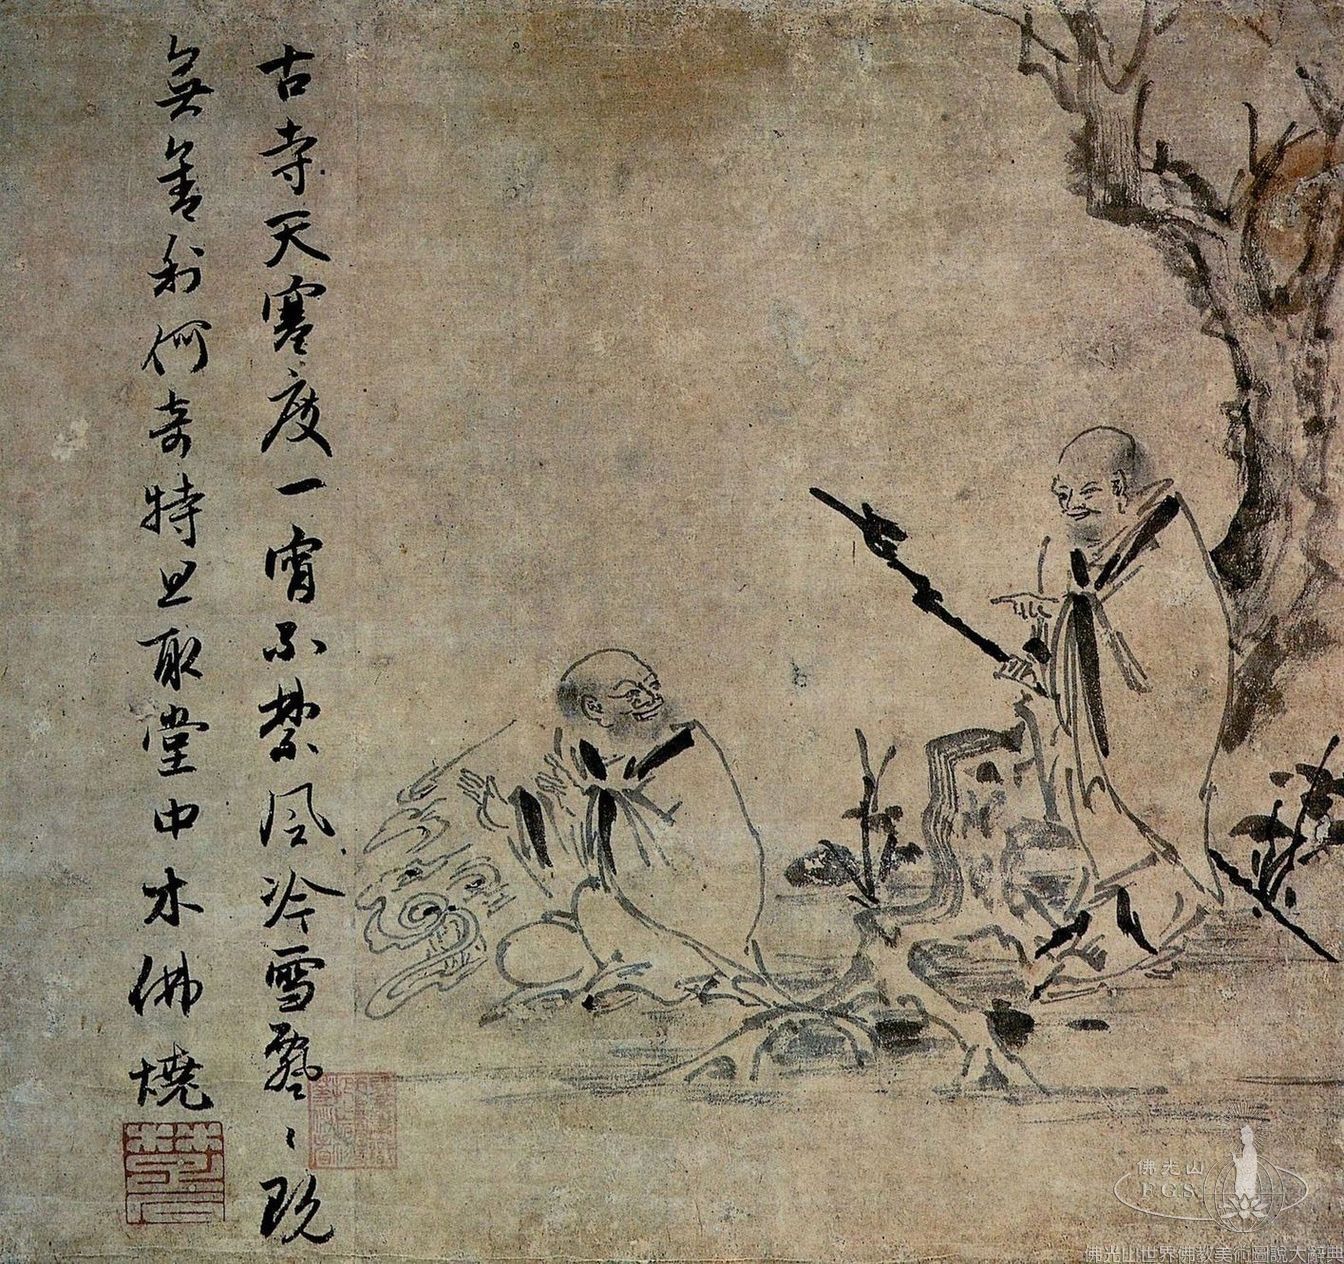 古寺天寒度一宵不禁風冷雪飄〻既
無舍利何奇特且取堂中木佛燒
佛光山
F.G.S.
佛光山世界佛教美術圖說大辭典